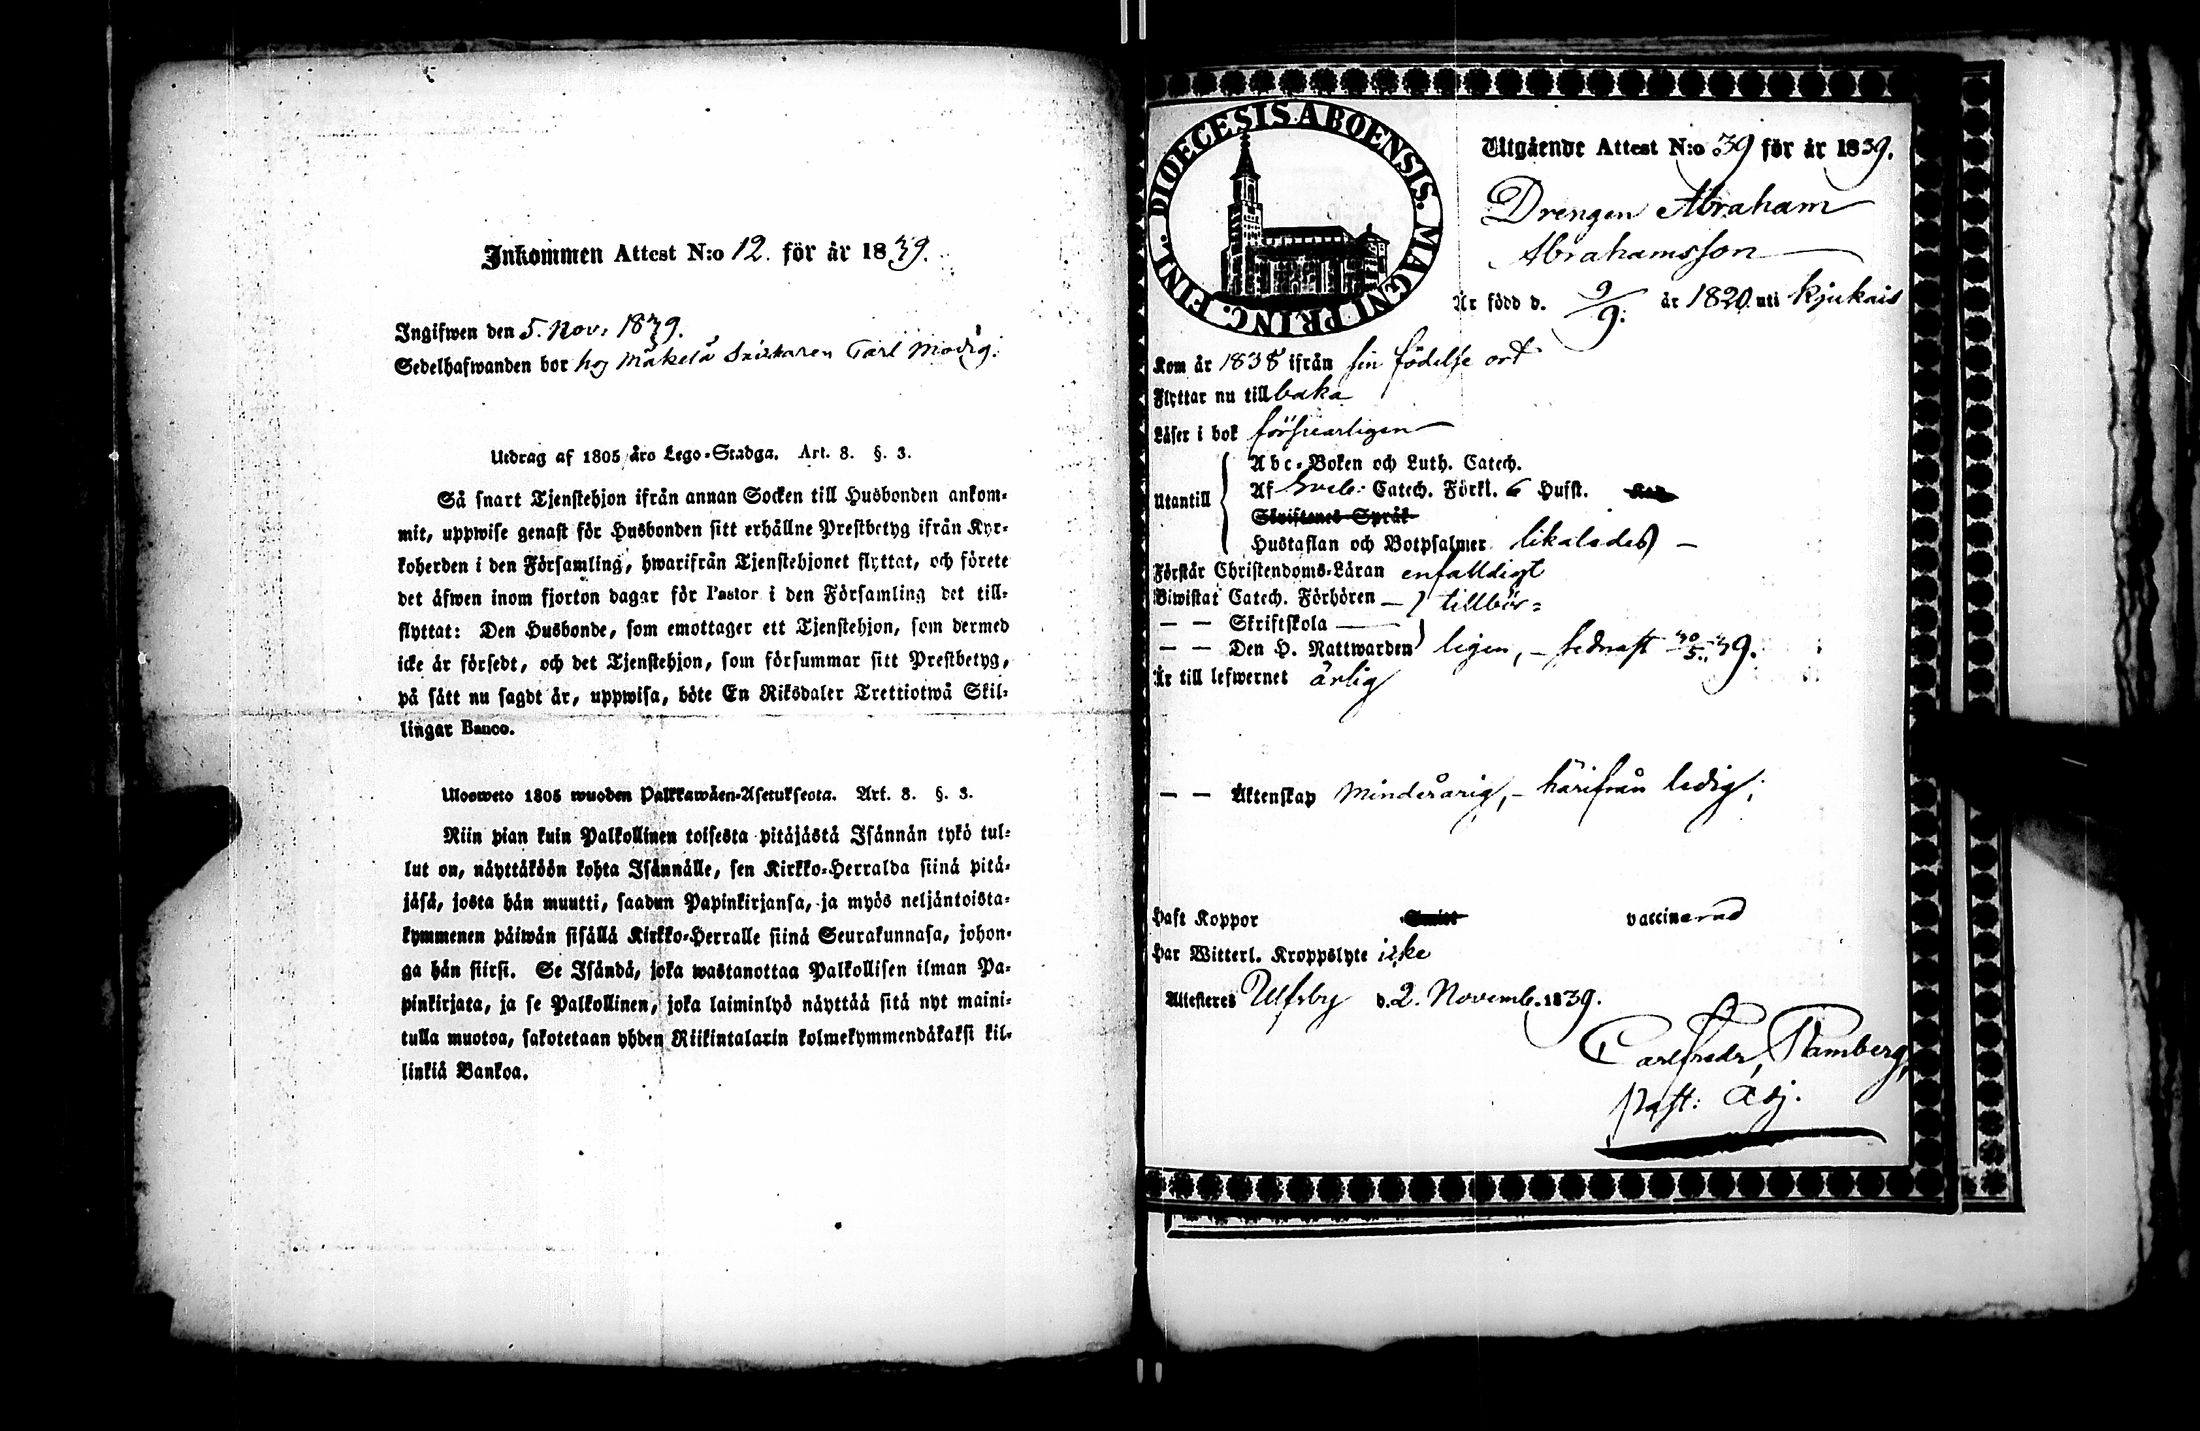 Inkommen Attest N:o 12. för år 1839.
Ingifwen den 5. Nov. 1839.
Sedelhafwanden bor hoj Mäkelä Carl Modig.
Utdrag af 1805 års Lego-Stadga. Art. 8. §. 3.
Så snart Tjenstehjon ifrån annan Socken till Husbonden ankom-
mit, uppwise genast för Husbonden sitt erhållne Prestbetyg ifrån Kyr-
koherden i den Församling, hwarifrån Tjenstehjonet flyttat, och förete
det äfwen inom fjorton dagar för Pastor i den Församling det till-
flyttat: Den Husbonde, som emottager ett Tjenstehjon, som dermed
icke är försedt, och det Tjenstehjon, som försummar sitt Prestbetyg,
på sätt nu sagdt är, uppwisa, böte En Riksdaler Trettiotwå Skil-
lingar Banco.
Ulosweto 1805 wuoden Palkkawäen-Asetuksesta. Art. 8. §. 3.
Niin pian kuin Palkollinen toisesta pitäjästä Isännän tykö tul-
lut on, näyttäköön kohta Isännälle, sen Kirkko-Herralda siinä pitä-
jäsä, josta hän muutti, saadun Papinkirjansa, ja myös neljäntoista-
kymmenen päiwän sisällä Kirkko-Herralle siinä Seurakunnasa, johon-
ga hän siirsi. Se Isändä, joka wastanottaa Palkollisen ilman Pa-
pinkirjata, ja se Palkollinen, joka laiminlyö näyttää sitä nyt maini-
tulla muotoa, sakotetaan yhden Riikintalarin kolmekymmendäkaksi kil-
linkiä Bankoa.
DIOECESIS ABOENSIS. MAGNI PRINC. FINL.
Utgående Attest N:o 39 för år 1839.
Drengen Abraham
Abrahamsson
Är född d. 9/9. år 1820. uti Kjukais
Kom år 1838 ifrån sin födelse ort
Flyttar nu till baka
Läser i bok försvarligen
Utantill
Abc-Boken och Luth. Catech.
Af Sveb: Catech. Förkl. 6 Hufst.
Skriftenes Språk
Hustaflan och Botpsalmer likaledes
Förstår Christendoms-Läran enfalldigt
Biwistat Catech. Förhören — tillbör=
— — Skriftskola
— — Den H. Nattwarden ligen, — sednast 30/5. 39.
Är till lefwernet ärlig
— — Äktenskap minderårig, — härifrån ledig;
Haft Koppor vaccinerad
Har Witterl. Kroppslyte icke
Attesteres Ulfsby d. 2. Novemb. 1839.
Carl Fredr. Stamberg,
Past: Adj.